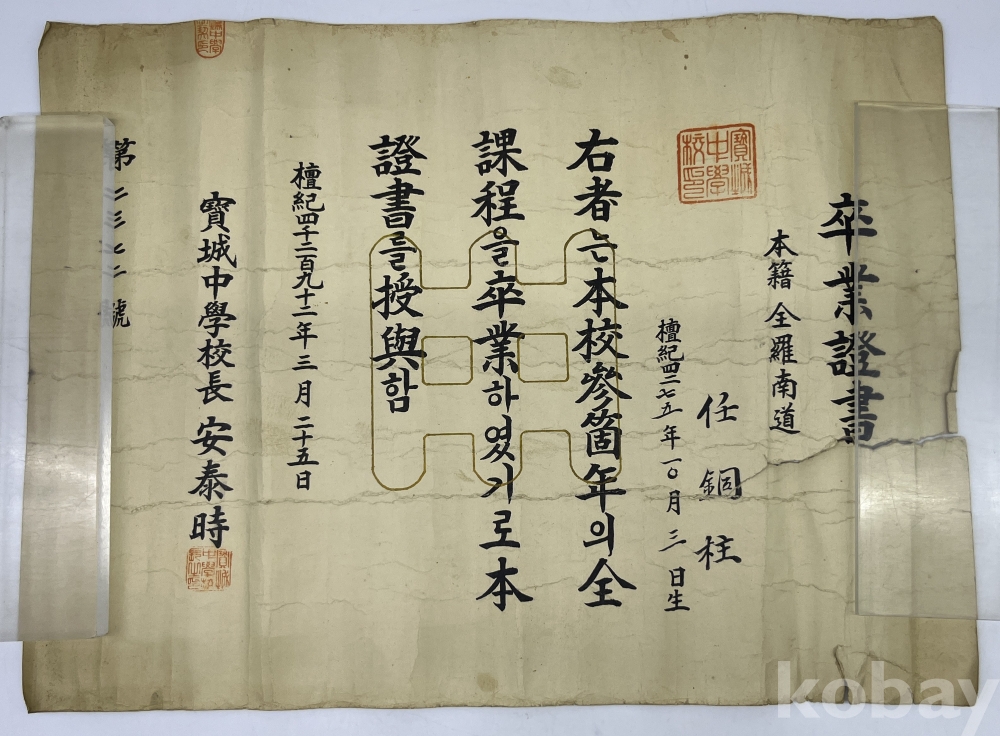 卒業證書
本籍 全羅南道
任銅柱
檀紀四二七五年一〇月三日生
右者는本校參箇年의全
課程을卒業하였기로本
證書를授與함
檀紀四千二百九十二年三月二十五日
寶城中學校長 安泰時
第二三七二號
寶城中學校印
kobay